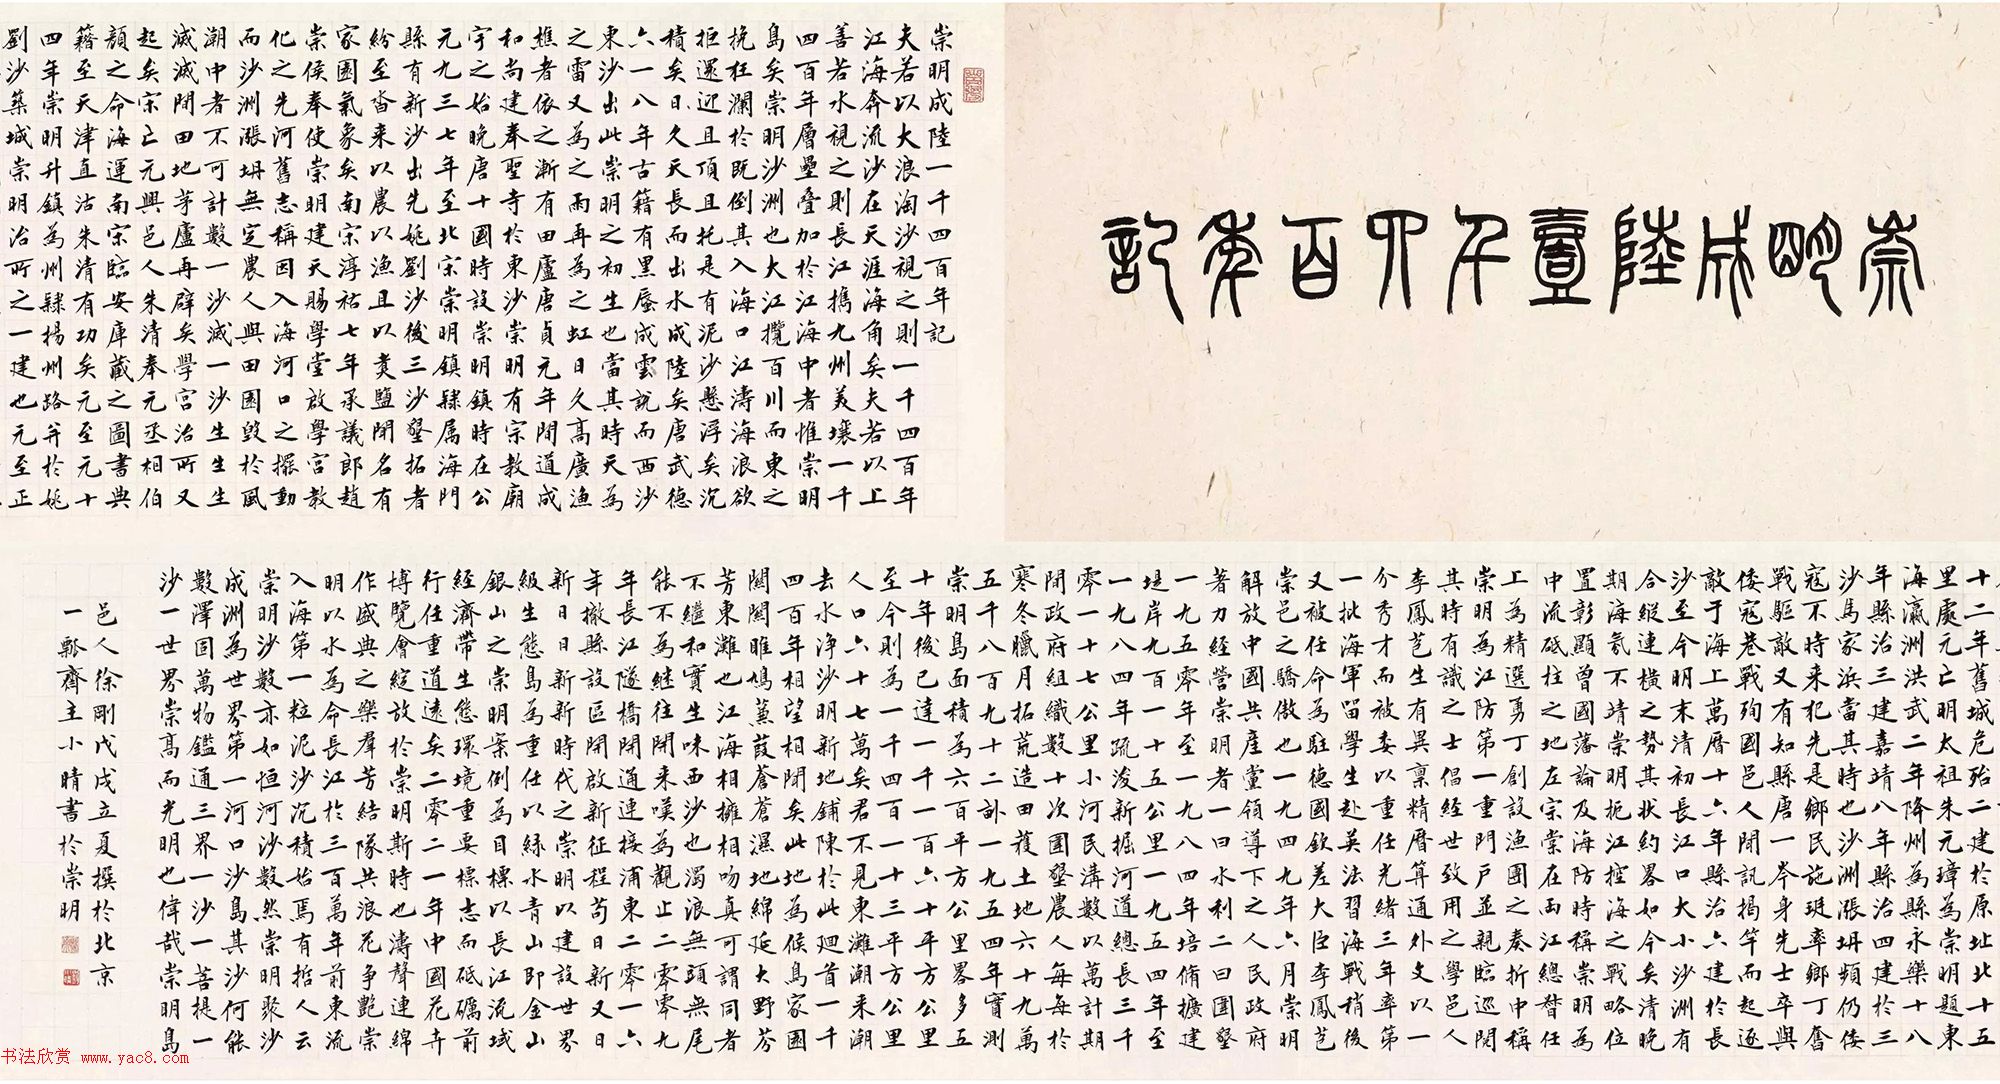 崇明成陸壹千四百年記
崇明成陸一千四百年記
夫若以大浪淘沙視之則一千四百年
江海奔流沙在天涯海角矣夫若以上
善若水視之則長江攜九州美壤一千
四百年層壘疊加於江海中者惟崇明
島矣崇明沙洲也大江攬百川而東之
挽狂瀾於既倒其入海口江濤海浪欲
拒還迎且頂且托是有泥沙懸浮矣沉
積矣日久天長而出水成陸矣唐武德
六一八年古籍有黑蜃成雲說而西沙
東沙出此崇明之初生也當其時天為
之雷又為之雨再為之虹日久高廣漁
樵者依之漸有田廬唐貞元年間道成
和尚建奉聖寺於東沙崇明有宗教廟
宇之始晚唐十國時設崇明鎮時在公
元九三七年至北宋崇明鎮隸属海門
縣有新沙出先姚劉沙後三沙墾拓者
紛至沓来以農以漁且以煑鹽聞名有
家園氣象矣南宋淳祐七年承議郎趙
崇侯奉使崇明建天賜學堂啟學宮教
化之先河舊志稱因入海河口之擺動
而沙洲漲坍無定農人與田園毀於風
潮中者不可計數一沙滅一沙生生生
滅滅間田地茅廬再辟矣學宮治所又
起矣宋亡元興邑人朱清奉元丞相伯
顏之命海運南宋臨安庫藏之圖書典
籍至天津直沽朱清有功矣元至元十
四年崇明升鎮為州隸揚州路并於姚
劉沙築城崇明治所之一建也元至正
十二年舊城危殆二建於原址北十五
里處元亡明太祖朱元璋為崇明題東
海瀛洲洪武二年降州為縣永樂十八
年縣治三建嘉靖八年縣治四建於三
沙馬家浜當其時也沙洲漲坍頻仍倭
寇不時来犯先是鄉民施珽率鄉丁奮
戰驅敵又有知縣唐一岑身先士卒與
倭寇巷戰殉國邑人聞訊揭竿而起逐
敵于海上萬曆十六年縣治六建於長
沙至今明末清初長江口大小沙洲有
合縱連橫之勢其状約畧如今矣清晚
期海氛不靖崇明扼江控海之戰略位
置彰顯曾國藩論及海防時稱崇明為
中流砥柱之地左宗棠在兩江總督任
上為精選勇丁創設漁團之奏折中稱
崇明為江防第一重門戶並親臨巡閱
其時有識之士倡經世致用之學邑人
李鳳苞生有異禀精曆算通外文以一
介秀才而被委以重任光緒三年率第
一批海軍留學生赴英法習海戰稍後
又被任命為駐德國欽差大臣李鳳苞
崇邑之驕傲也一九四九年六月崇明
解放中國共產黨領導下之人民政府
著力經營崇明者一曰水利二曰圍墾
一九五零年至一九八四年培脩擴建
堤岸九百一十五公里一九五四年至
一九八四年疏浚新掘河道總長三千
零一十七公里小河民溝數以萬計期
間政府組織數十次圍墾農人每每於
寒冬臘月拓荒造田獲土地六十九萬
五千八百九十二畝一九五四年實測
崇明島面積為六百平方公里畧多五
十年後已達一千一百六十平方公里
至今則為一千四百一十三平方公里
人口六十七萬矣君不見東灘潮来潮
去水净沙明新地鋪陳於此廻首一千
四百年相望相聞矣此地為候鳥家園
關關雎鳩蒹葭蒼蒼濕地綿延大野芬
芳東灘也江海相擁相吻真可謂同者
不繼和實生味西沙也濁浪無頭無尾
能不為继往開来嘆為觀止二零零九
年長江隧橋開通連接浦東二零一六
年撤縣設區開啟新征程苟日新又日
新日日新新時代之崇明以建設世界
級生態島為重任以緑水青山即金山
銀山之崇明案例為目標以長江流域
經濟帶生態環境重要標志而砥礪前
行任重道遠矣二零二一年中國花卉
博覽會綻放於崇明斯時也濤聲連綿
作盛典之樂羣芳結隊共浪花爭艷崇
明以水為命長江於三百萬年前東流
入海第一粒泥沙沉積始焉有哲人云
崇明沙數亦如恒河沙數然崇明聚沙
成洲為世界第一河口沙島其沙何能
數澤固萬物鑑通三界一沙一菩提一
沙一世界崇高而光明也偉哉崇明島
邑人徐剛戊戌立夏撰於北京
一瓢齋主小晴書於崇明
书法欣赏 www.yac8.com